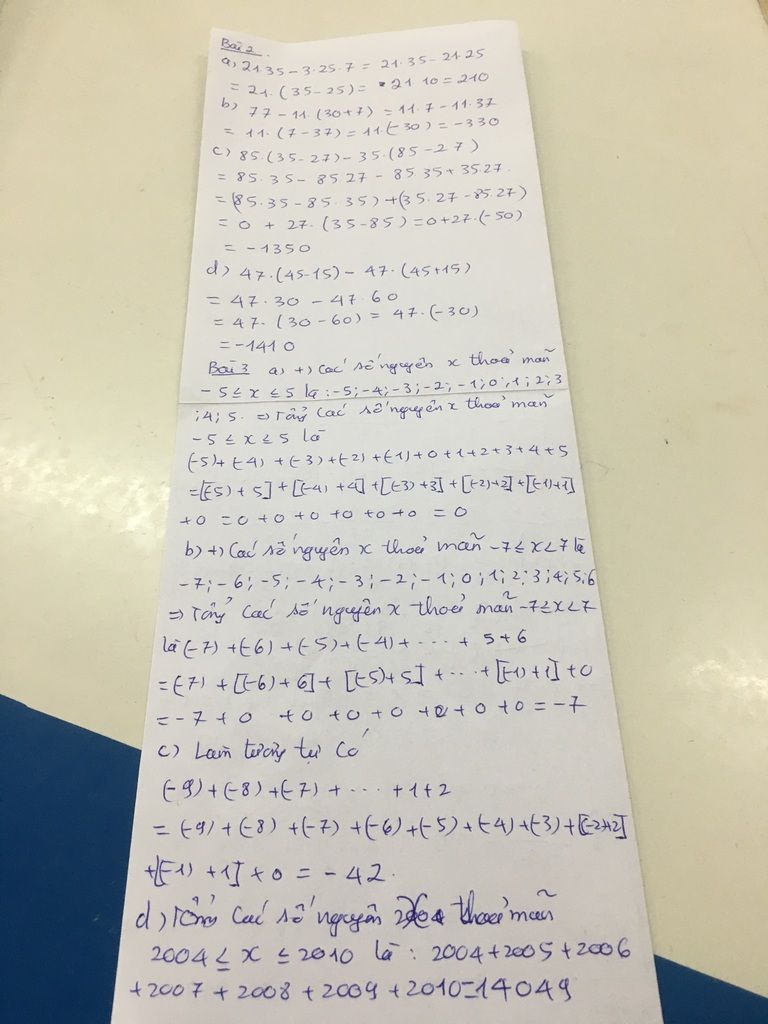 Bài 2.
a) 21.35 - 3.25.7 = 21.35 - 21.25
= 21.(35-25) = 21 10 = 210
b) 77 - 11.(30+7) = 11.7 - 11.37
= 11.(7-37) = 11.(-30) = -330
c) 85.(35-27) - 35.(85-27)
= 85.35 - 85 27 - 85 35 + 35.27.
= (85.35 - 85.35) + (35.27 - 85.27)
= 0 + 27.(35-85) = 0+27.(-50)
= -1350
d) 47.(45-15) - 47.(45+15)
= 47.30 - 47.60
= 47.(30-60) = 47.(-30)
= -1410
Bài 3 a, +) Các số nguyên x thoả mãn
-5 ≤ x ≤ 5 là: -5; -4; -3; -2; -1; 0; 1; 2; 3
; 4; 5. ⇒ Tổng các số nguyên x thoả mãn
-5 ≤ x ≤ 5 là
(-5) + (-4) + (-3) + (-2) + (-1) + 0 + 1 + 2 + 3 + 4 + 5
= [(-5) + 5] + [(-4) + 4] + [(-3) + 3] + [(-2) + 2] + [(-1) + 1]
+ 0 = 0 + 0 + 0 + 0 + 0 + 0 = 0
b) +) Các số nguyên x thoả mãn -7 ≤ x < 7 là
-7; -6; -5; -4; -3; -2; -1; 0; 1; 2; 3; 4; 5; 6
⇒ Tổng các số nguyên x thoả mãn -7 ≤ x < 7
là (-7) + (-6) + (-5) + (-4) + ... + 5 + 6
= (-7) + [(-6) + 6] + [(-5) + 5] + ... + [(-1) + 1] + 0
= -7 + 0 + 0 + 0 + 0 + 0 + 0 + 0 = -7
c) Làm tương tự có
(-9) + (-8) + (-7) + ... + 1 + 2
= (-9) + (-8) + (-7) + (-6) + (-5) + (-4) + (-3) + [(-2) + 2]
+ [(-1) + 1] + 0 = -42.
d) Tổng các số nguyên thoả mãn
2004 ≤ x ≤ 2010 là : 2004 + 2005 + 2006
+ 2007 + 2008 + 2009 + 2010 = 14049